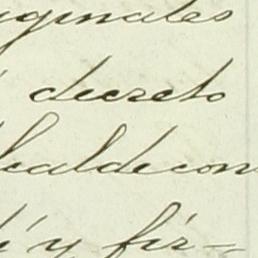 iginales
decreto
lcalde con
y fir-